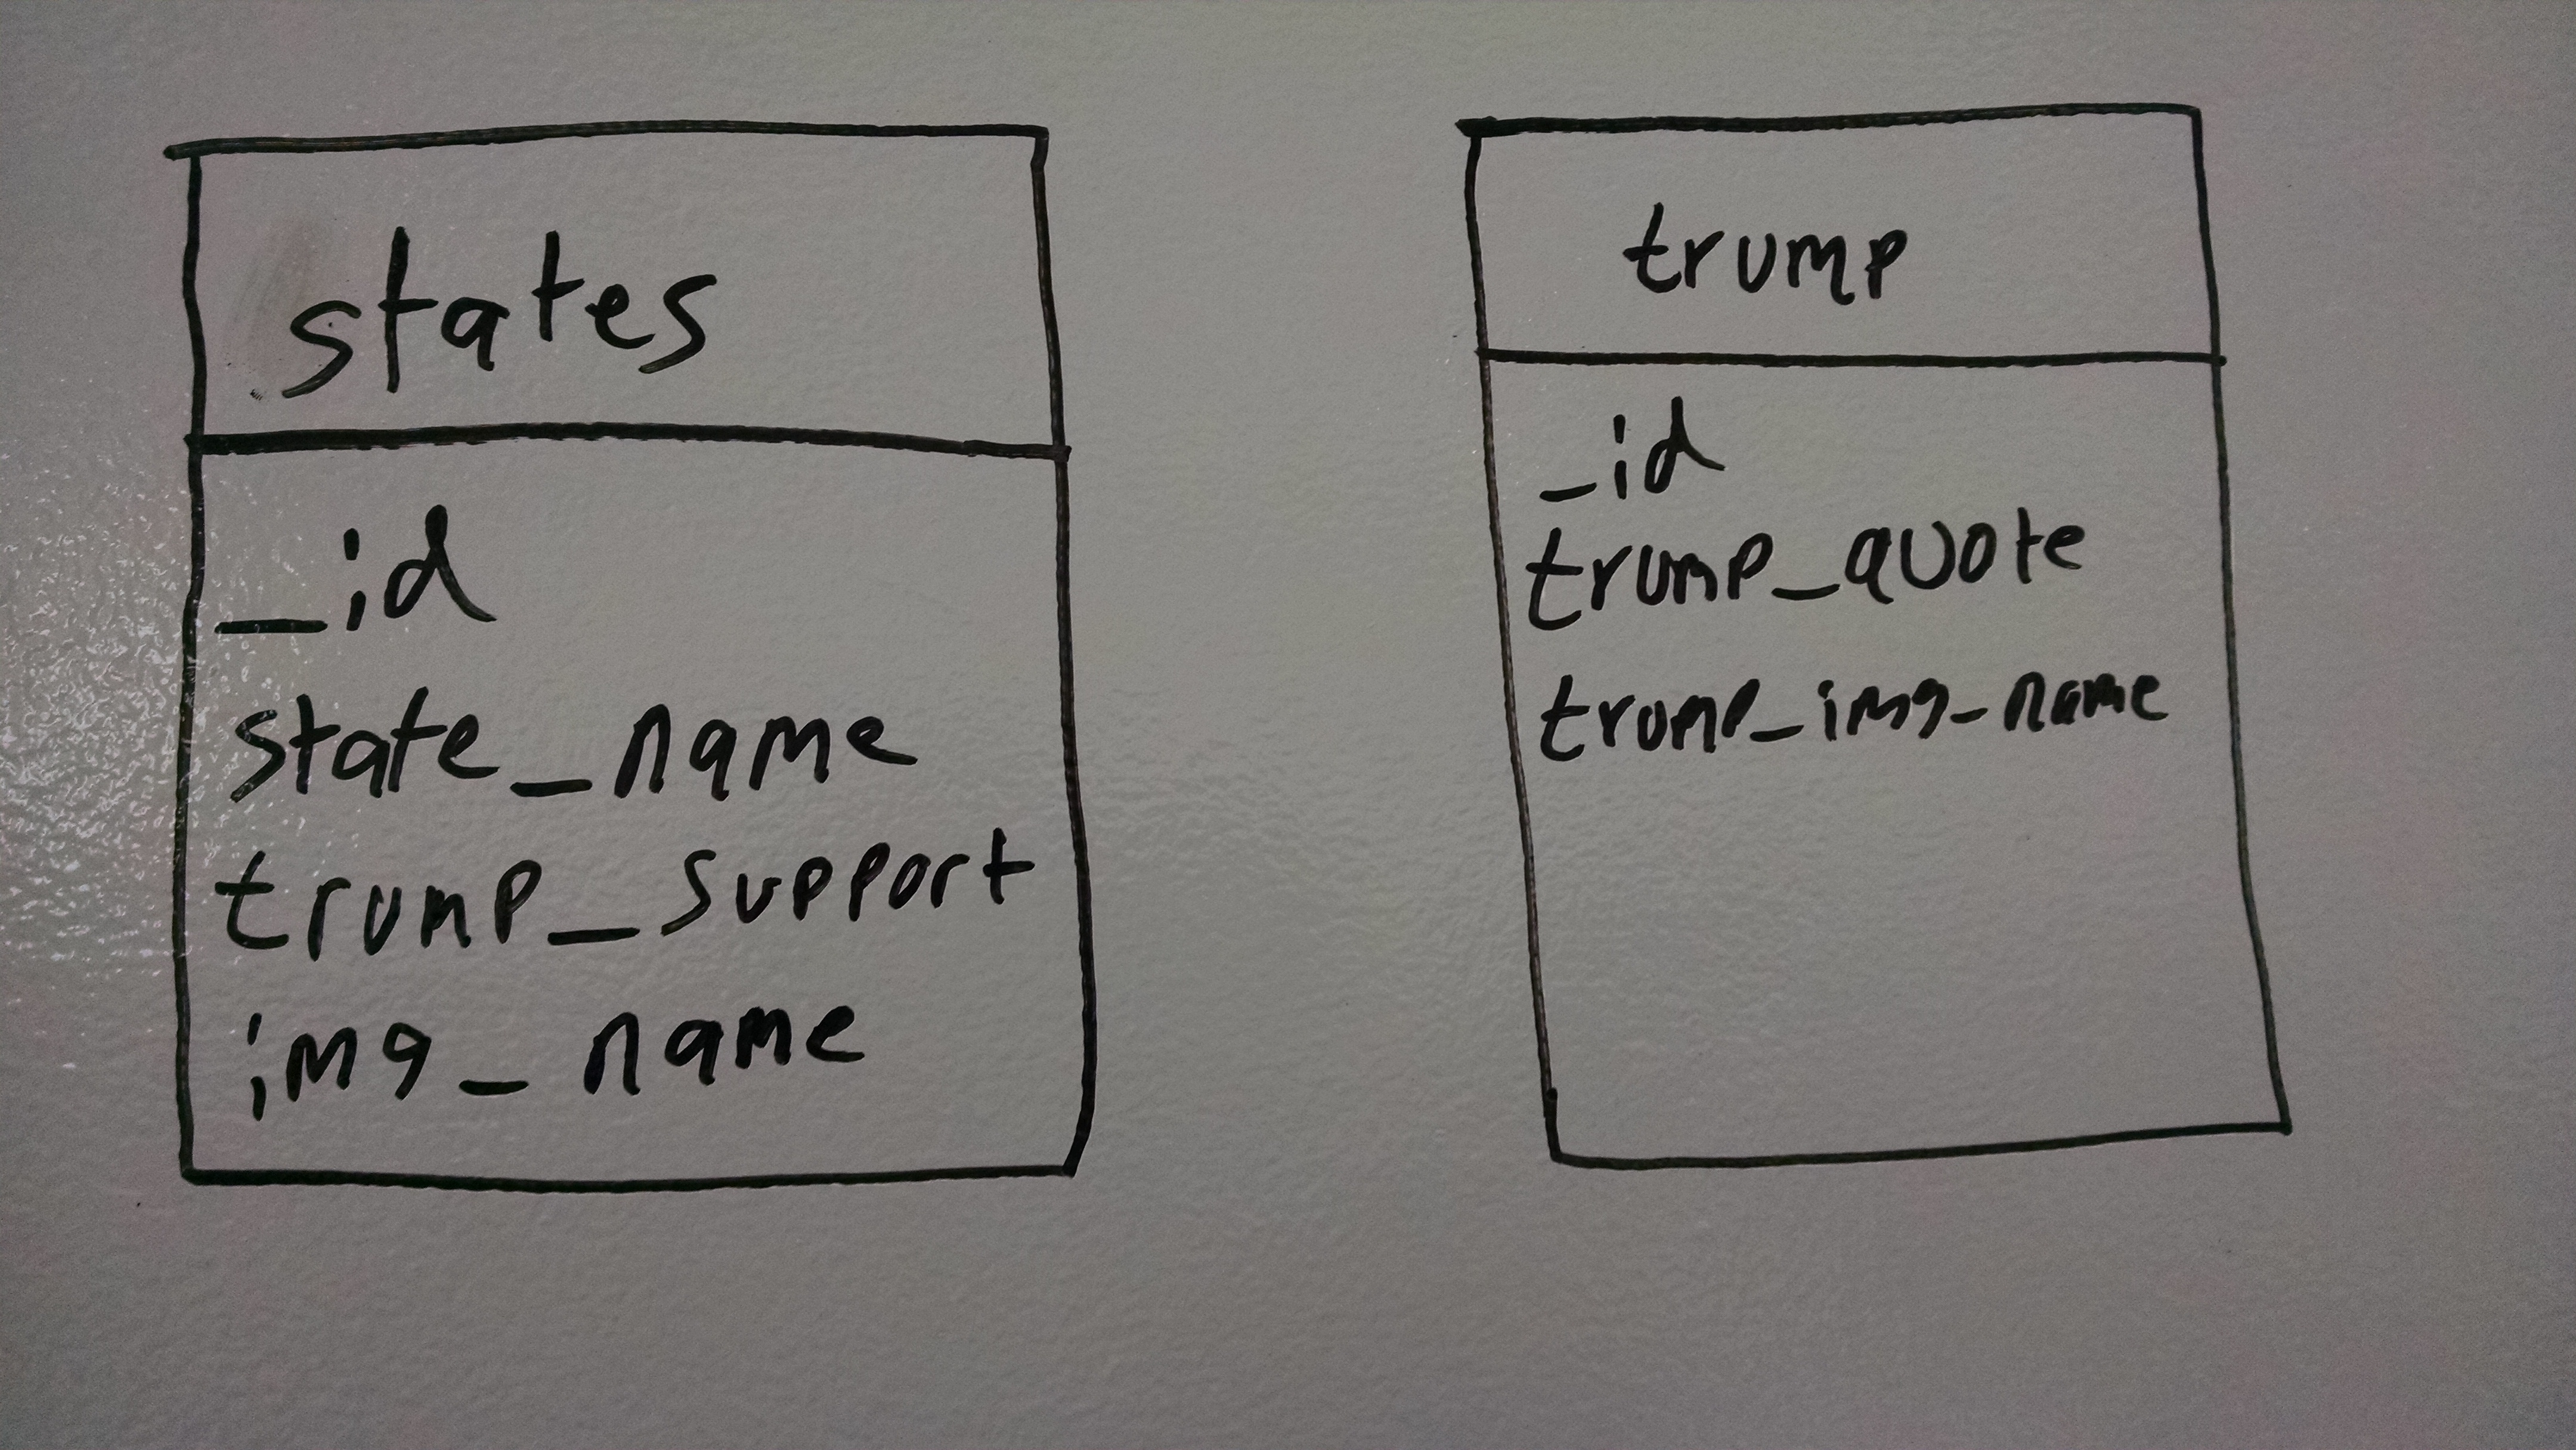 states
_id
state_name
trump_support
img_name
trump
_id
trump_quote
trump_img_name